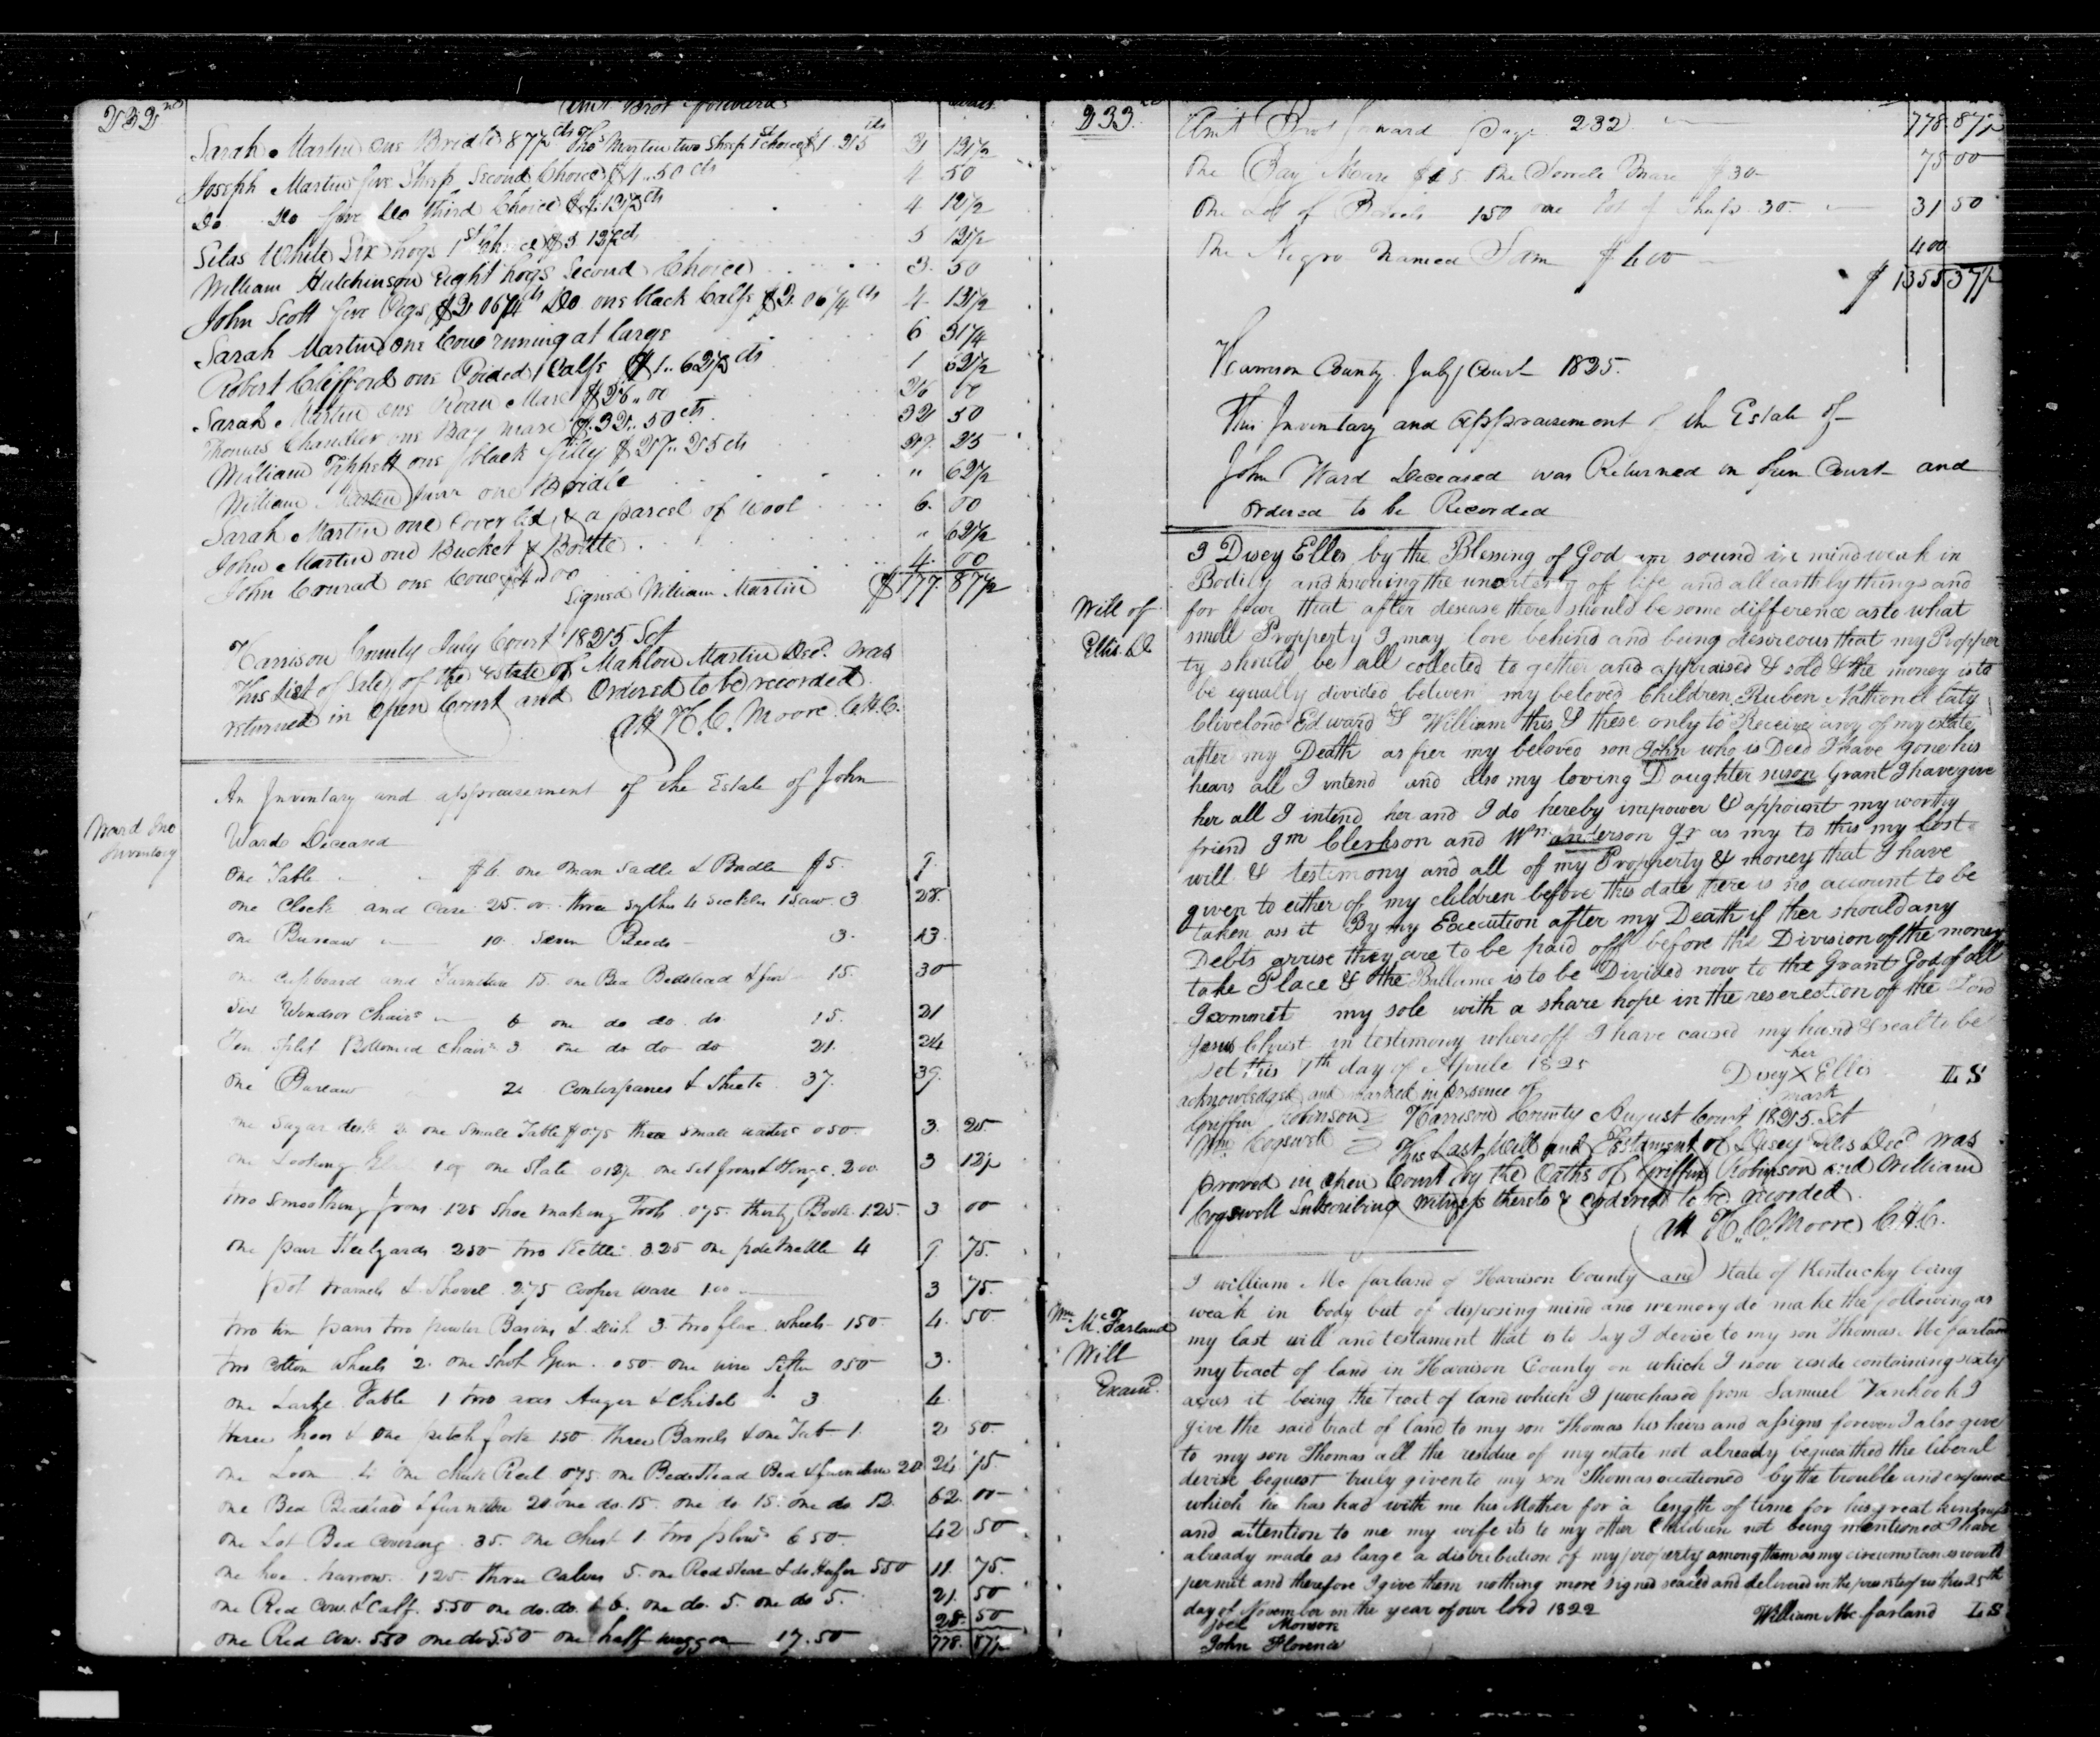 232nd
Amt Brot forward
Sarah Martin one Bridle 87½ cts Thos Martin two Sheep 1st choice $1.25 cts 2 12½
Joseph Martin five Sheep Second Choice $4..50 cts 4 50
Do Do five Do third Choice $4.12½ cts 4 12½
Silas White Six hogs 1st Choice $5 12½ cts 5 12½
William Hutchinson Eight hogs Second Choice 3. 50
John Scott five Pigs $2 06¼ cts Do one black Calfe $2. 06¼ cts 4 12½
Sarah Martin one Cow runing at large 6 31¼
Robert Clifford one Calfe $1..62½ cts 1 62½
Sarah Martin one Roan Mare $26..00 26 00
Thomas Chandler one Bay mare $32..50 cts 32 50
William Tippett one black filly $27..25 cts 27. 25
William Martin Junr one Bridle " 62½
Sarah Martin one Coverled & a parcel of wool 6. 00
John Martin one Bucket & Bottle " 62½
John Conrad one Cow $4.00 4. 00
Signed William Martin $177. 87½
Harrison County July Court 1825 Sct
This List of Sales of the estate of Mahlon Martin Decd. was
returned in open Court and Ordered to be recorded.
att H. C. Moore C.H.C.
Ward Jno
Inventory
An Inventory and appraisement of the Estate of John
Ward Deceased
One Table $4. one man Sadle & Bridle $5. 9.
one Clock and Case 25.00 three Sythes 4 Sickles 1 Saw 3 28.
one Bureaw 10. Seven Reeds 3. 13.
one cupboard and Furniture 15. one Bed Bedstead & fur 15. 30
Six Windsor Chairs 6 one do do. do. 15. 21
Ten Split Bottomed Chairs 3 one do do do 21. 24
One Bureaw 2. Conterpanes & Sheets 37. 39.
one Sugar desk 2 one Small Table $0.75 three Small waiters 0 50. 3. 25
one Looking 1.00 one Slate 0 12½ one Set Irons & 2 00. 3 12½
two Smoothing Irons 1.25 Shoe making Tools 0.75 thirty Books 1.25. 3 00
one pair Steelyards 2.50 two Kettles 3.25 one 4 9. 75.
pot tramels & Shovel 2.75 Cooper ware 1.00 3 75.
two tin pans two pewter Basins & dish 3. two flax wheels 1 50. 4. 50.
two cotton wheels 2. one Shot Gun. 0 50 one wire Sifter 0 50 3.
one Large Table 1 two axes Auger & Chisel 3 4.
three hoes & one pitch fork 1.50 three Barrels & one Tub 1. 2 50.
one Loom 4. one Chick Reel 0.75. one Bedsthead Bed & furniture 20 24 75.
one Bed Bedstead & furniture 20 one do. 15. one do 15. one do. 12. 62. 00
one Lot Bed covering 35. one Chest 1. two plows 6 50. 42 50
one hoe harrow 1 25 three Calves 5. one Red Steer & do Heifer 5 50 11. 75.
one Red Cow & Calf. 5.50 one do. do. & 6. one do. 5. one do 5. 21. 50
one Red Cow. 5.50 one do 5.50 one half waggon 17.50 28. 50
778. 87½
233rd
Amt Brot forward page 232 778. 87½
One Bay Mare $45 One Sorrele Mare $30 75 00
One Lot of Barrels 1 50 one lot of Sheep 30. 31 50
One Negro named Sam $400 400
$1355 37½
Harrison County July Court 1825.
This Inventory and appraisement of the Estate of
John Ward Deceased was Returned in Open Court and
ordered to be Recorded
Will of
Ellis D.
I Disey Elles by the Blessing of God am sound in mind weak in
Bodily and knowing the uncertenty of life and all earthly things and
for fear that after desease there should be some difference as to what
small Propperty I may love behind and being desireous that my Propper
ty should be all collected to gether and appraised & sold & the money is to
be equally divided betwen my beloved Children Ruben Nathanel Caty
Clivelond Edward & William this & these only to Receive any of my estate
after my Death as fer my beloved son John who is Deed I have gone his
hears all I intend and also my loving Daughter suson Grant I have give
her all I intend her and I do hereby impower & appoint my worthy
friend Jm Clerkson and Wm anderson Jr as my to this my Last
will & testimony and all of my Propperty & money that I have
given to either of my children before this date there is no account to be
taken ass it By my Execution after my Death if ther should any
Debts arrise they are to be paid off before the Division of the money
take Place & the Ballance is to be Divided now to the Grant God of all
I commit my sole with a share hope in the reserection of the Lord
Jesus Christ in testimony whereoff I have caused my hand & seal to be
set this 7th day of Aprile 1825
Disey X Ellis L S
her
mark
acknowledged and marked in presence of
Griffin Robinson
Wm Cogswell
Harrison County August Court 1825. Sct
This Last Will and Testament of Disey Ellis Decd was
proved in open Court by the Oaths of Griffin Robinson and William
Cogswell Subscribing witness thereto & ordered to be recorded.
att H. C. Moore C.H.C.
Wm
Mc.Farland
Will
Examd.
I william Mc farland of Harrison County and State of Kentucky being
weak in body but of disposing mind and memory do make the following as
my last will and testament that is to say I devise to my son Thomas Mc farland
my tract of land in Harrison County on which I now reside containing sixty
acres it being the tract of land which I purchased from Samuel Vanhook I
give the said tract of land to my son Thomas his heirs and assigns forever I also give
to my son Thomas all the residue of my estate not already bequeathed the liberal
devise bequest truly given to my son Thomas occationed by the trouble and expence
which he has had with me his Mother for a length of time for his great kindness
and attention to me my wife its to my other Children not being mentioned I have
already made as large a distribution of my property among them as my circumstances would
permit and therefore I give them nothing more signed sealed and delivered in the presents of us this 25th
day of November in the year of our lord 1822
William Mc farland L S
Joel Monson
John Florence